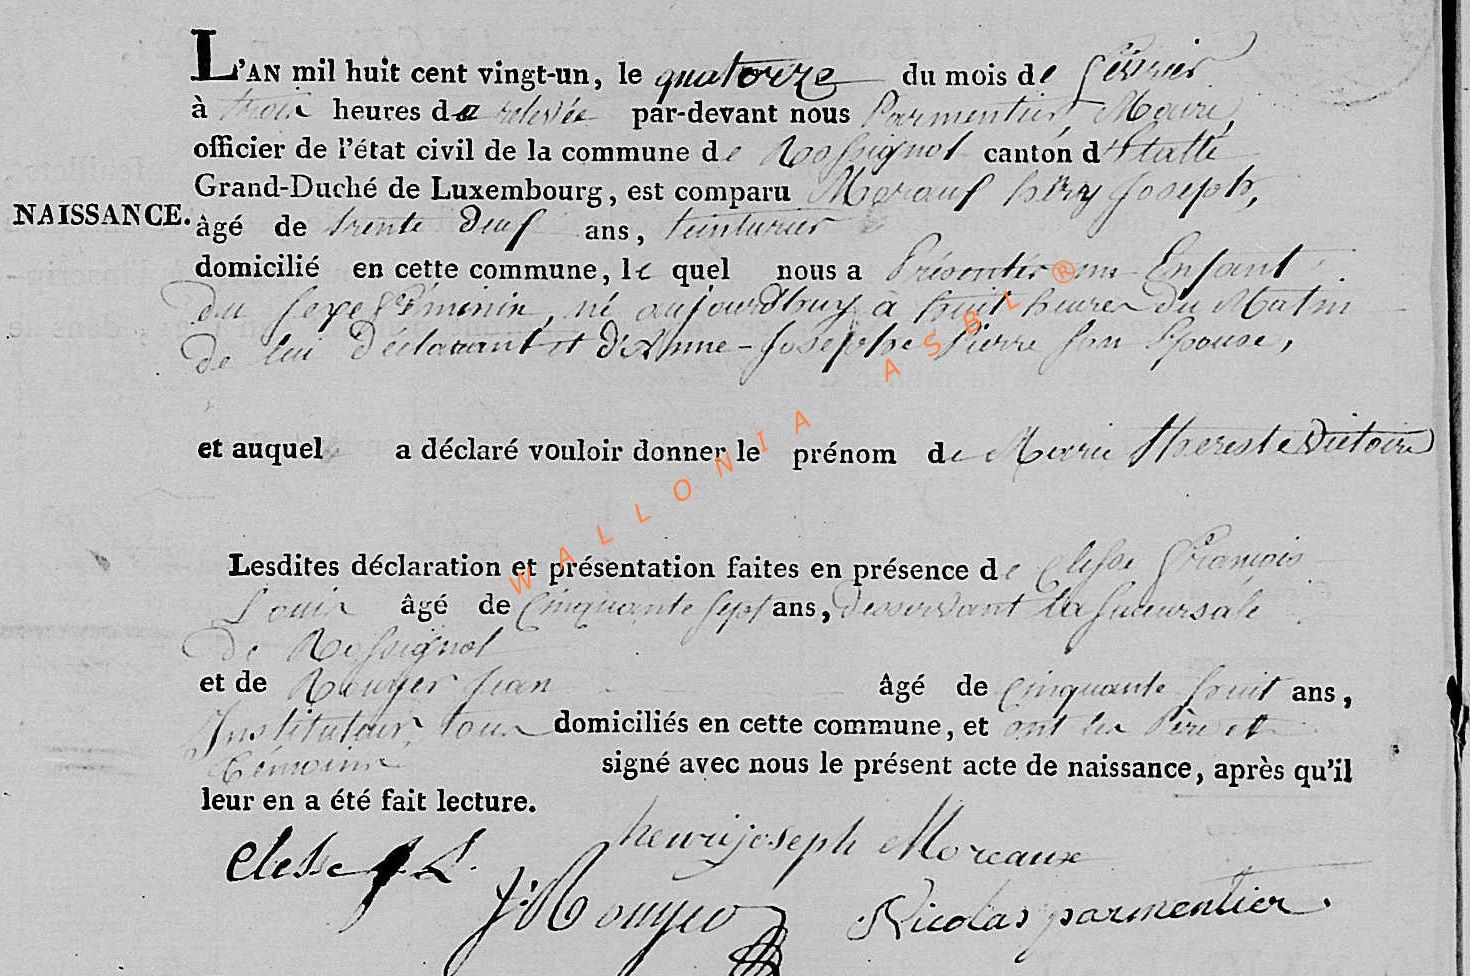 L'AN mil huit cent vingt-un, le quatorze du mois de février
à trois heures de relevée par-devant nous Parmentier, Maire,
officier de l'état civil de la commune de Rossignol canton d'Etalle
Grand-Duché de Luxembourg, est comparu Moraux hėry Joseph,
NAISSANCE. âgé de trente deux ans, teinturier
domicilié en cette commune, le quel nous a Présentér un Enfant
du sexe féminin, né aujourd'huy a huit heures du Matin
de lui Déclarant et d'Anne-Josephe Pierre son Epouse,
et auquel a déclaré vouloir donner le prénom de Marie Therese Victoire
Lesdites déclaration et présentation faites en présence de Clesse François
Louis âgé de Cinquante sept ans, desservant la succursale
de Rossignol
et de Rouyer Jean âgé de Cinquante huit ans,
Instituteur, tous domiciliés en cette commune, et ont les Père et
témoins signé avec nous le présent acte de naissance, après qu'il
leur en a été fait lecture.
Clesse f. L. henri joseph Moreaux
J: Rouyer Nicolas parmentier
WALLONIA ASBL ®